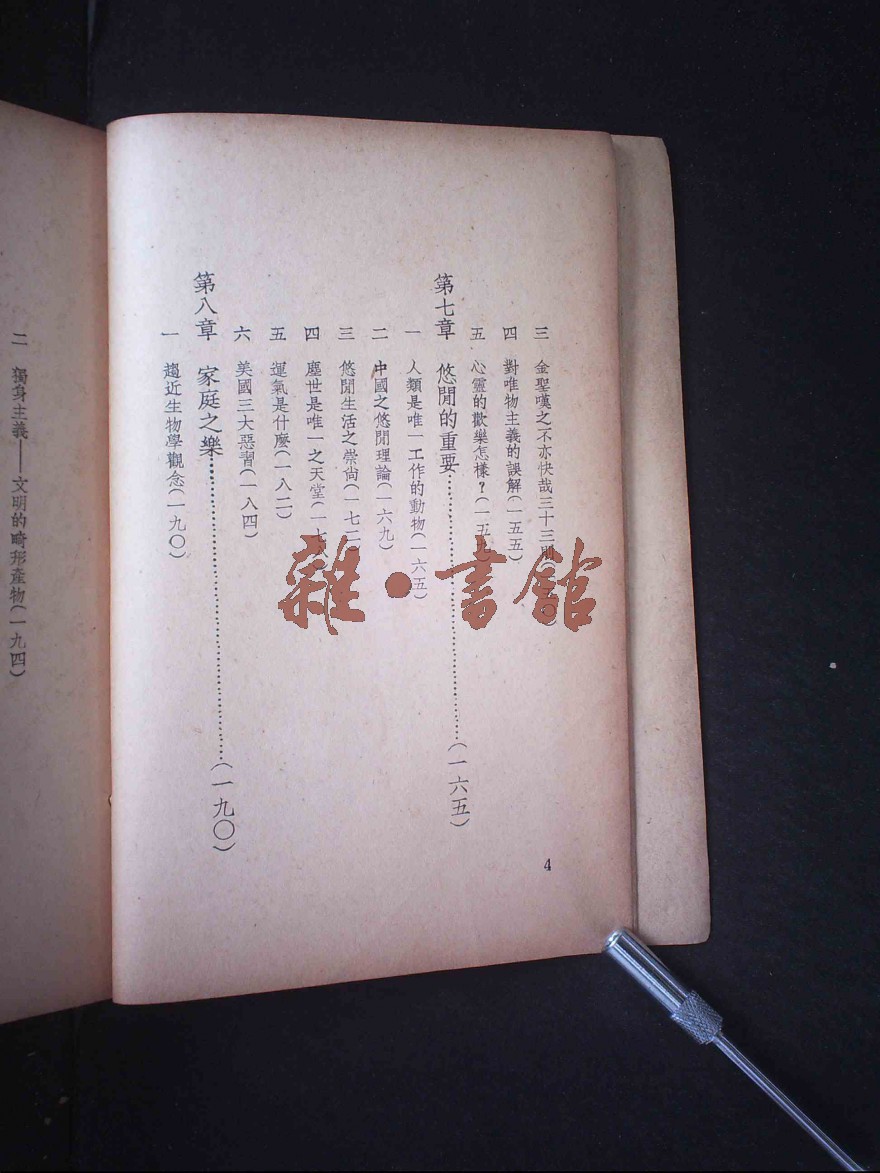 三 金聖嘆之不亦快哉三十三則
四 對唯物主義的誤解(一五五)
五 心靈的歡樂怎樣?(一五九)
第七章 悠閒的重要…………(一六五)
一 人類是唯一工作的動物(一六五)
二 中國之悠閒理論(一六九)
三 悠閒生活之崇尚(一七二)
四 塵世是唯一之天堂(一七
五 運氣是什麼(一八二)
六 美國三大惡習(一八四)
第八章 家庭之樂…………(一九〇)
一 趨近生物學觀念(一九〇)
4
二 獨身主義——文明的畸形產物(一九四)
雜·書館